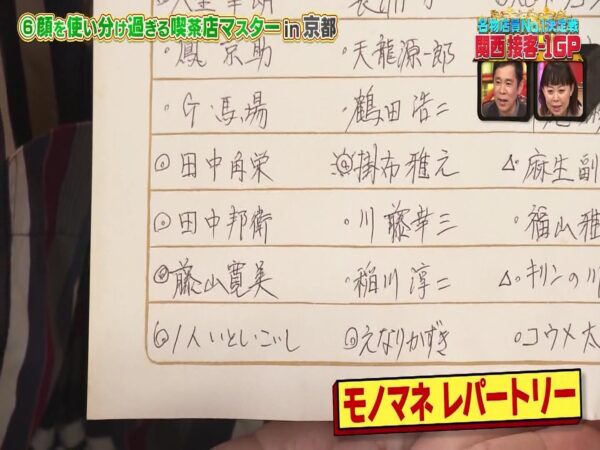 ⑥顔を使い分け過ぎる喫茶店マスターin京都
名物店員No.1決定戦
関西接客-1GP
鳳 京助 ・天龍源一郎
・G.馬場 ・鶴田浩二
田中角栄 掛布雅之 △麻生副
田中邦衛 ・川藤幸三 ○福山雅
藤山寛美 ・稲川淳二 △キリンの川
1人いとしこいし えなりかずき ○コウメ太
モノマネ レパートリー